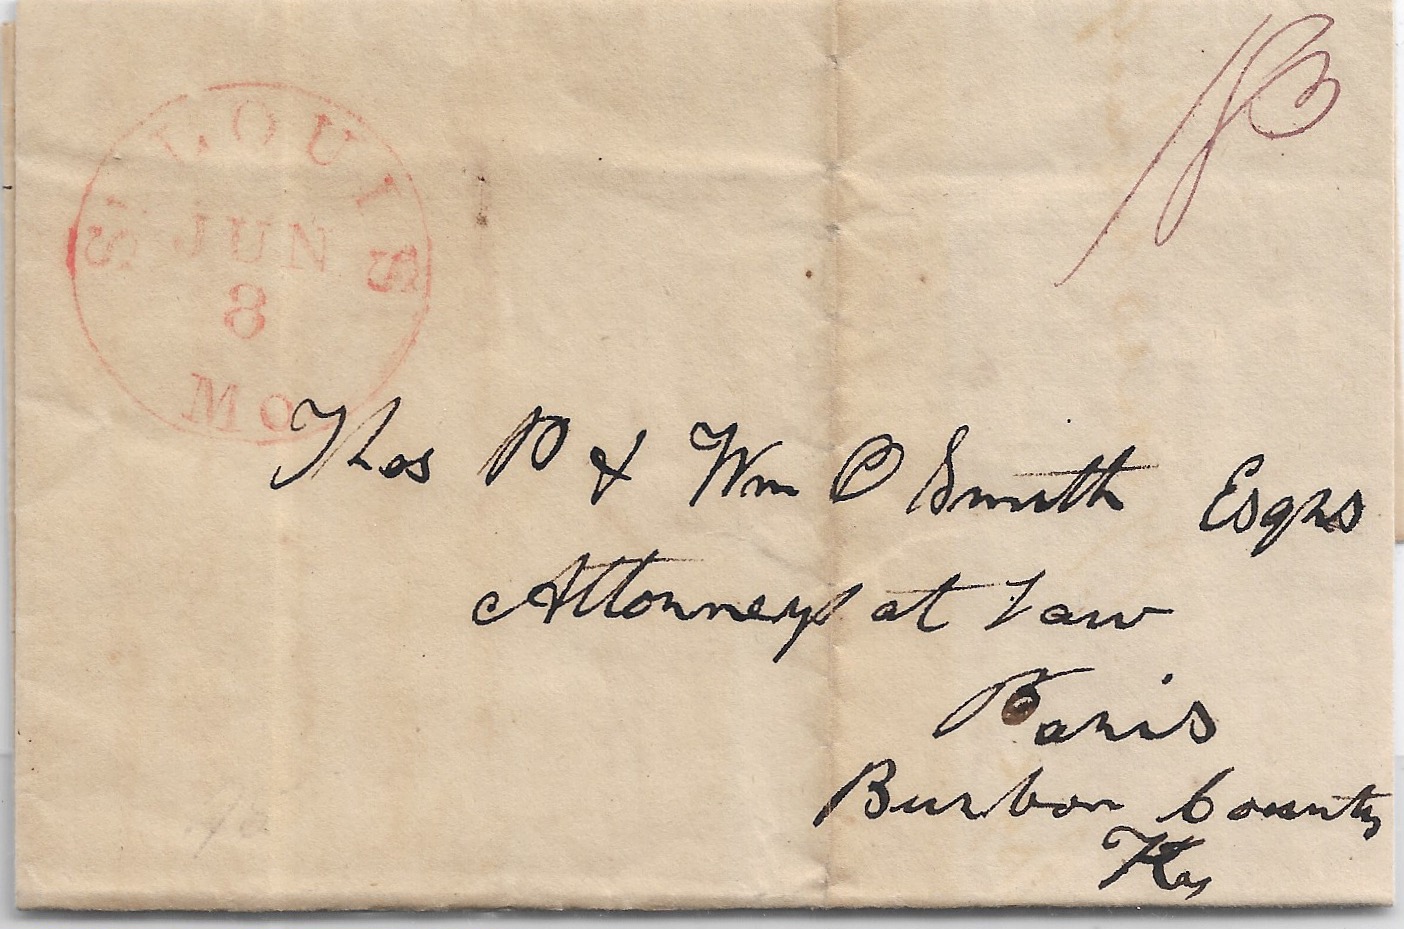 ST LOUIS
JUN
8
MO
Thos P & Wm C Smith Esqrs
Attorneys at Law
Paris
Burbon County
Ky